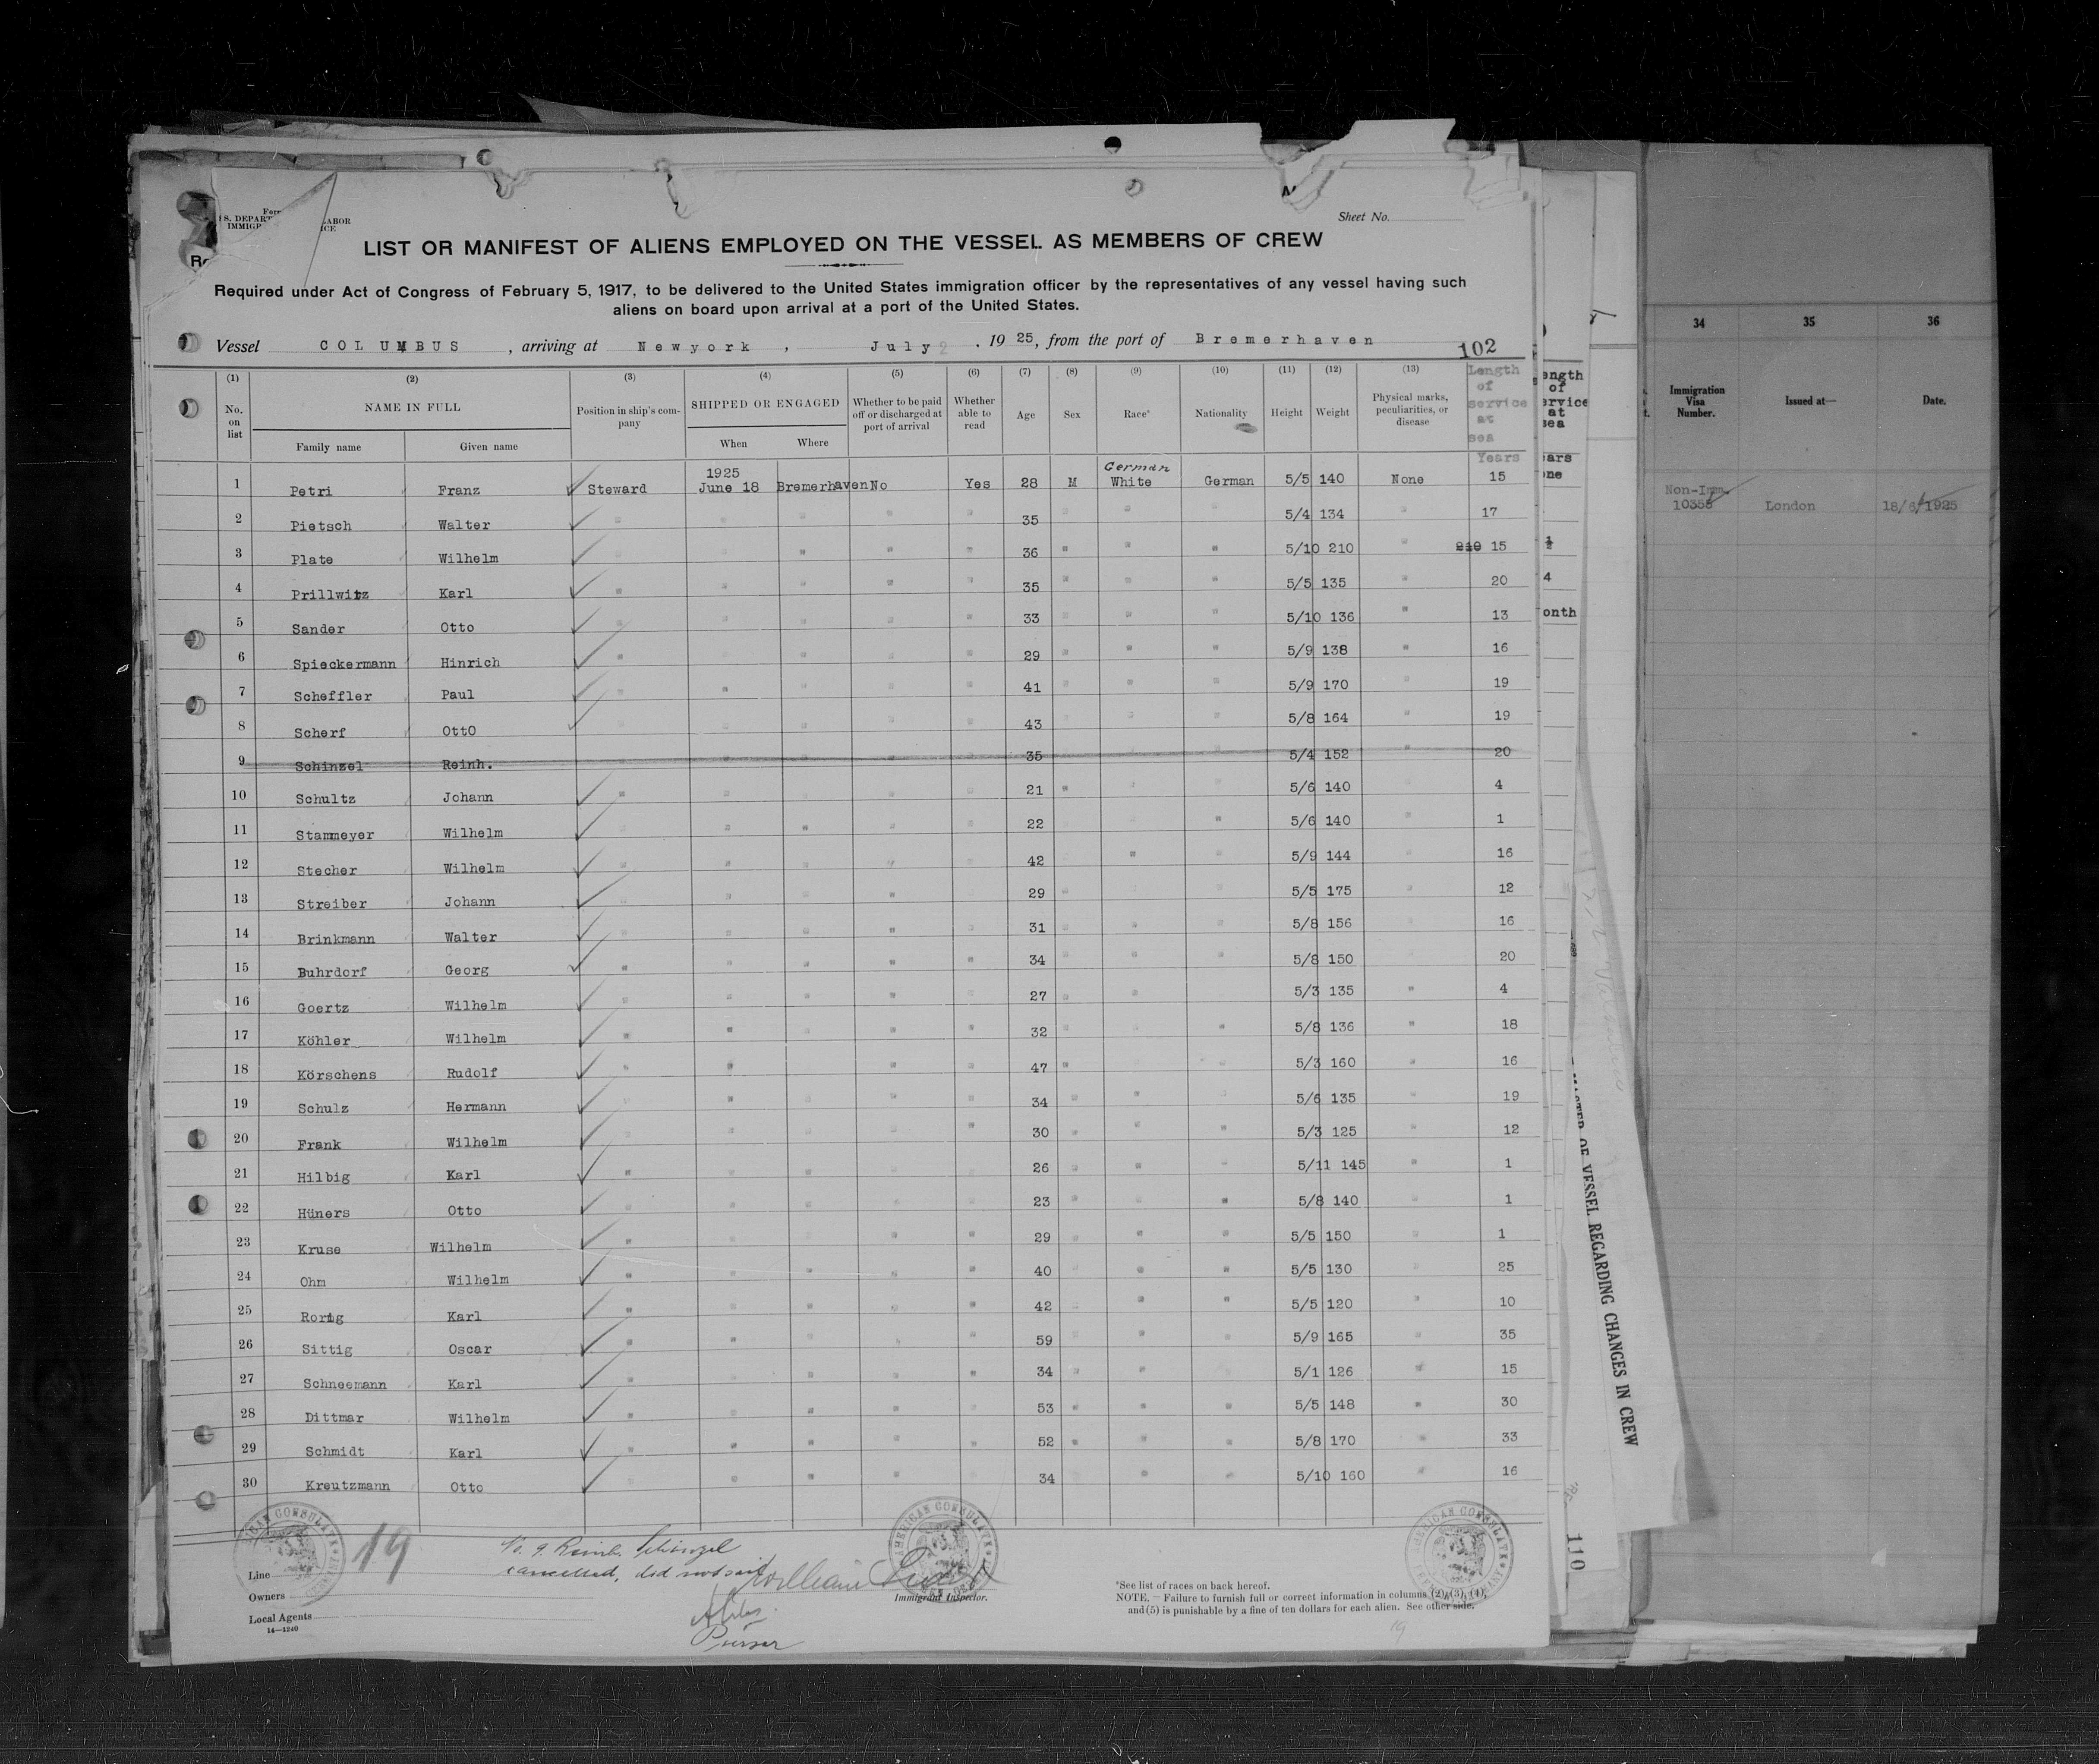 Sheet No.
LIST OR MANIFEST OF ALIENS EMPLOYED ON THE VESSEL AS MEMBERS OF CREW
Required under Act of Congress of February 5, 1917, to be delivered to the United States immigration officer by the representatives of any vessel having such
aliens on board upon arrival at a port of the United States.
Vessel COLUMBUS, arriving at Newyork, July 2. 1925, from the port of Bremerhaven 102
(1) (2) (3) (4) (5) (6) (7) (8) (9) (10) (11) (12) (13) Length of service at sea
No. on list NAME IN FULL Position in ship's company SHIPPED OR ENGAGED Whether to be paid off or discharged at port of arrival Whether able to read Age Sex Race* Nationality Height Weight Physical marks, peculiarities, or disease
Family name Given name When Where Years
1925 German
1 Petri Franz Steward June 18 Bremerhaven No Yes 28 M White German 5/5 140 None 15
2 Pietsch Walter " " " " " 35 " " 5/4 134 " 17
3 Plate Wilhelm " " " " 36 " " " 5/10 210 " 210 15
4 Prillwitz Karl " " " " " 35 " " " 5/5 135 " 20
5 Sander Otto " " " " " 33 " " " 5/10 136 " 13
6 Spieckermann Hinrich " " " " " 29 " " " 5/9 138 " 16
7 Scheffler Paul " " " " " 41 " " " 5/9 170 " 19
8 Scherf OttO " " " " " 43 " " " 5/8 164 " 19
9 Schinzel Reinh. " " " " 35 " 5/4 152 " 20
10 Schultz Johann " " " " " 21 " " " 5/6 140 " 4
11 Stammeyer Wilhelm " " " " " 22 " " 5/6 140 " 1
12 Stecher Wilhelm " " " " " 42 " " 5/9 144 " 16
13 Streiber Johann " " " " " 29 " " 5/5 175 " 12
14 Brinkmann Walter " " " " " 31 " " " 5/8 156 " 16
15 Buhrdorf Georg " " " " " 34 " " " 5/8 150 " 20
16 Goertz Wilhelm " " " " " 27 " " 5/3 135 " 4
17 Köhler Wilhelm " " " " " 32 " " " 5/8 136 " 18
18 Körschens Rudolf " " " " 47 " " 5/3 160 " 16
19 Schulz Hermann " " " " " 34 " " " 5/6 135 " 19
20 Frank Wilhelm " " " " " 30 " " " 5/3 125 " 12
21 Hilbig Karl " " " " " 26 " " " 5/11 145 " 1
22 Hüners Otto " " " " " 23 " " " 5/8 140 " 1
23 Kruse Wilhelm " " " " " 29 " " " 5/5 150 " 1
24 Ohm Wilhelm " " " " " 40 " " " 5/5 130 " 25
25 Rorig Karl " " " " " 42 " " " 5/5 120 " 10
26 Sittig Oscar " " " " " 59 " " " 5/9 165 " 35
27 Schneemann Karl " " " " " 34 " " " 5/1 126 " 15
28 Dittmar Wilhelm " " " " " 53 " " " 5/5 148 " 30
29 Schmidt Karl " " " " " 52 " " " 5/8 170 " 33
30 Kreutzmann Otto " " " " 34 " " 5/10 160 " 16
AMERICAN CONSULATE
19
No. 9. Reinh. Schinzel
cancelled, did not sail
Purser
Line
Owners
Local Agents
14—1240
Immigrant Inspector.
*See list of races on back hereof.
NOTE. — Failure to furnish full or correct information in columns (2), (3), (4),
and (5) is punishable by a fine of ten dollars for each alien. See other side.
19
ength
of
ervice
at
sea
ars
one
½
4
onth
MASTER OF VESSEL REGARDING CHANGES IN CREW
110
34 35 36
Immigration Visa Number. Issued at— Date.
Non-Imm.
10358 London 18/6/1925